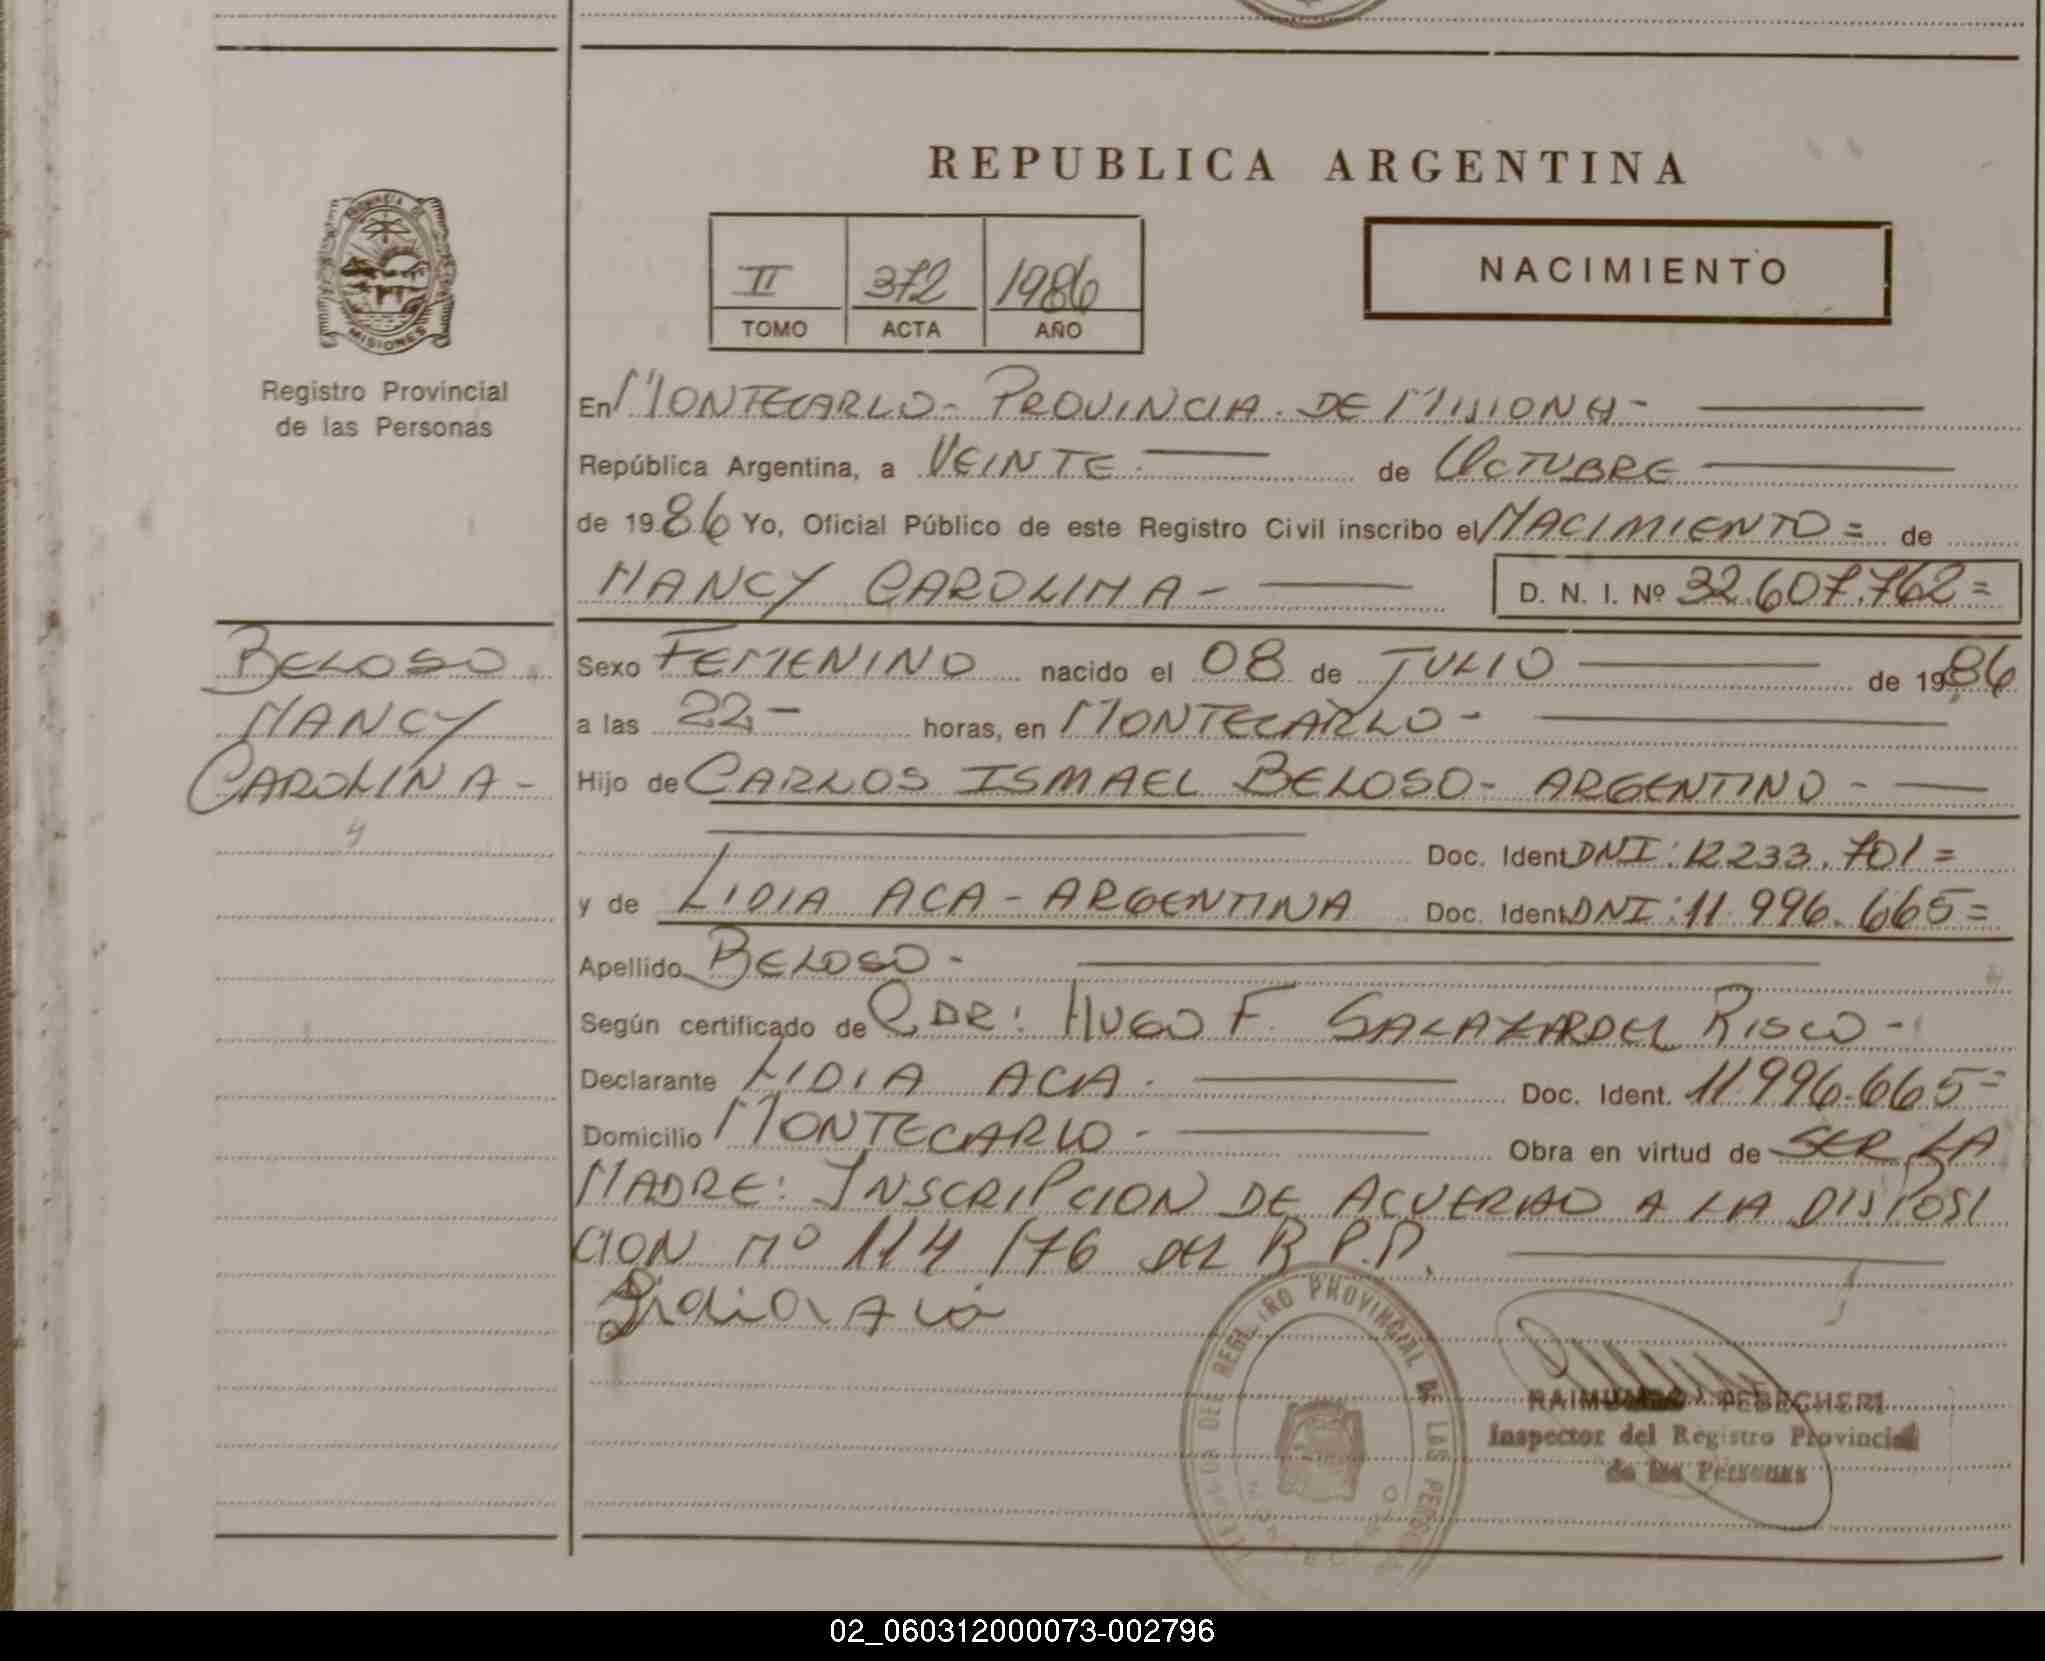 REPUBLICA ARGENTINA
II 372 1986
TOMO ACTA AÑO
NACIMIENTO
MISIONES
Registro Provincial
de las Personas
En MONTECARLO - PROVINCIA DE MISIONES -
República Argentina, a VEINTE de OCTUBRE
de 1986 Yo, Oficial Público de este Registro Civil inscribo el NACIMIENTO = de
NANCY CAROLINA - D. N. I. Nº 32.607.762 =
BELOSO
NANCY
CAROLINA -
Sexo FEMENINO nacido el 08 de JULIO de 1986
a las 22 - horas, en MONTECARLO -
Hijo de CARLOS ISMAEL BELOSO - ARGENTINO -
Doc. Ident. DNI: 12.233.701 =
y de LIDIA ACA - ARGENTINA Doc. Ident. DNI: 11.996.665 =
Apellido BELOSO -
Según certificado de DR: HUGO F. SALAZAR DEL RISCO -
Declarante LIDIA ACA. Doc. Ident. 11.996.665 =
Domicilio MONTECARLO - Obra en virtud de SER LA
MADRE: INSCRIPCION DE ACUERDO A LA DISPOSI
CION nº 114/76 DEL R.P.P.
Lidia Aca
REGISTRO PROVINCIAL DE LAS PERSONAS
RAIMUNDO PEBECHERI
Inspector del Registro Provincial
de las Personas
02_060312000073-002796